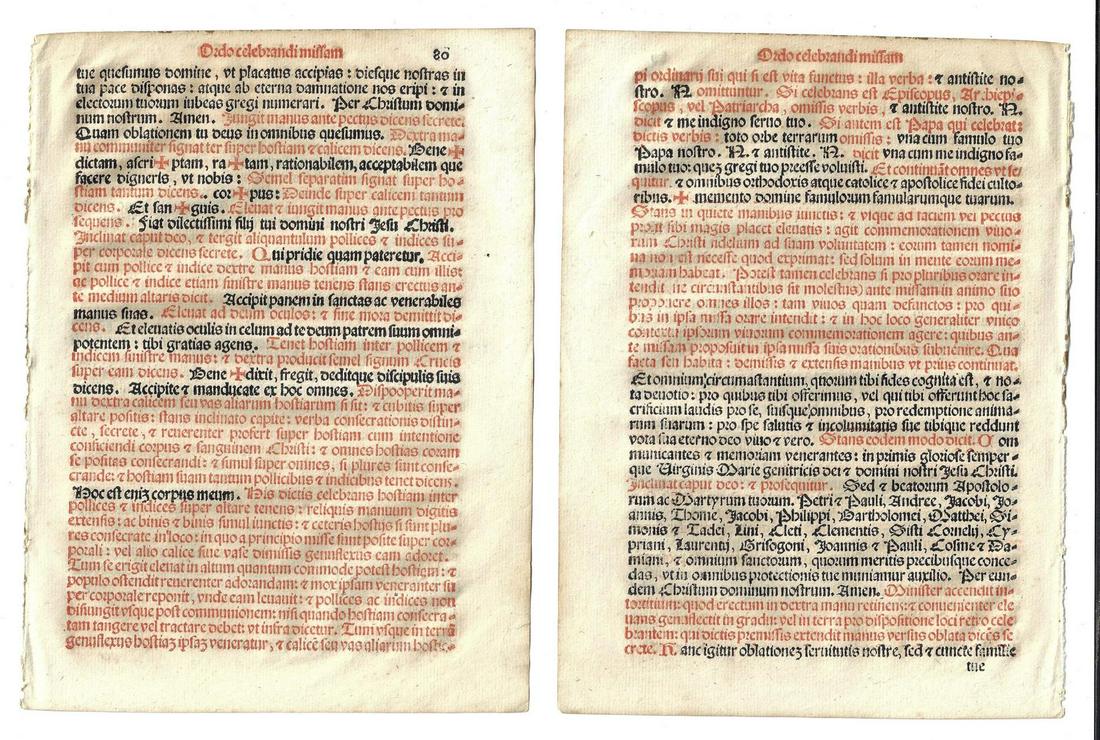 Ordo celebrandi missam 80
tue quesumus domine, vt placatus accipias: diesque nostras in
tua pace disponas: atque ab eterna damnatione nos eripi: ⁊ in
electorum tuorum iubeas gregi numerari. Per Christum domi-
num nostrum. Amen. Jungit manus ante pectus dicens secrete.
Quam oblationem tu deus in omnibus quesumus. Dextra ma-
nu communiter signat ter super hostiam ⁊ calicem dicens. Bene✠
dictam, ascri✠ptam, ra✠tam, rationabilem, acceptabilem que
facere digneris, vt nobis: Semel separatim signat super ho-
stiam tantum dicens. cor✠pus: Deinde super calicem tantum
dicens. Et san✠guis. Eleuat ⁊ iungit manus ante pectus pro
sequens. Fiat dilectissimi filij tui domini nostri Jesu Christi.
Inclinat caput deo, ⁊ tergit aliquantulum pollices ⁊ indices su-
per corporale dicens secrete. Qui pridie quam pateretur. Acci-
pit cum pollice ⁊ indice dextre manus hostiam ⁊ eam cum illis
ac pollice ⁊ indice etiam sinistre manus tenens stans erectus an-
te medium altaris dicit. Accipit panem in sanctas ac venerabiles
manus suas. Eleuat ad deum oculos: ⁊ sine mora demittit di-
cens. Et eleuatis oculis in celum ad te deum patrem suum omni-
potentem: tibi gratias agens. Tenet hostiam inter pollicem ⁊
indicem sinistre manus: ⁊ dextra producit semel signum Crucis
super eam dicens. Bene✠dixit, fregit, deditque discipulis suis
dicens. Accipite ⁊ manducate ex hoc omnes. Dispooperit ma-
nu dextra calicem seu vas aliarum hostiarum si sit: ⁊ cubitis super
altare positis: stans inclinato capite: verba consecrationis distin-
cte, secrete, ⁊ reuerenter profert super hostiam cum intentione
conficiendi corpus ⁊ sanguinem Christi: ⁊ omnes hostias coram
se positas consecrandi: ⁊ simul super omnes, si plures sunt conse-
crande: ⁊ hostiam suam tantum pollicibus ⁊ indicibus tenet dicens.
Hoc est eniz corpus meum. His dictis celebrans hostiam inter
pollices ⁊ indices super altare tenens: reliquis manuum digitis
extensis: ac binis ⁊ binis simul iunctis: ⁊ ceteris hostijs si sunt plu-
res consecrate in loco: in quo a principio misse sunt posite super cor-
porali: vel alio calice siue vase dimissis genuflexus eam adoret.
Tum se erigit eleuat in altum quantum commode potest hostiam: ⁊
populo ostendit reuerenter adorandam: ⁊ mox ipsam veneranter su
per corporale reponit, vnde eam leuauit: ⁊ pollices ac indices non
disiungit vsque post communionem: nisi quando hostiam consecra-
tam tangere vel tractare debet: vt infra dicetur. Tum vsque in terrã
genuflexus hostiaz ipsaz veneratur, ⁊ calicẽ seu vas aliarum hostia-
Ordo celebrandi missam
pi ordinarij sui qui si est vita functus: illa verba: ⁊ antistite no-
stro. N. omittuntur. Si celebrans est Episcopus, Archiepi-
scopus, vel Patriarcha, omissis verbis, ⁊ antistite nostro. N.
dicit ⁊ me indigno seruo tuo. Si autem est Papa qui celebrat:
dictis verbis: toto orbe terrarum omissis: vna cum famulo tuo
Papa nostro. N. ⁊ antistite. N. dicit vna cum me indigno fa-
mulo tuo: quez gregi tuo preesse voluisti. Et continuãt omnes vt se-
quitur. ⁊ omnibus orthodoxis atque catolice ⁊ apostolice fidei culto-
ribus. ✠ memento domine famulorum famularumque tuarum.
Stans in quiete manibus iunctis: ⁊ vsque ad faciem vel pectus
prout sibi magis placet eleuatis: agit commemorationem viuo-
rum Christi fidelium ad suam voluntatem: eorum tamen nomi-
na non est necesse quod exprimat: sed solum in mente eorum me-
moriam habeat. Potest tamen celebrans si pro pluribus orare in-
tendit (ne circunstantibus sit molestus) ante missam in animo suo
proponere omnes illos: tam viuos quam defunctos: pro qui-
bus in ipsa missa orare intendit: ⁊ in hoc loco generaliter vnico
contextu ipsorum viuorum commemorationem agere: quibus an-
te missam proposuit in ipsa missa suis orationibus subuenire. Qua
facta seu habita: demissis ⁊ extensis manibus vt prius continuat.
Et omnium circumastantium, quorum tibi fides cognita est, ⁊ no-
ta deuotio: pro quibus tibi offerimus, vel qui tibi offerunt hoc sa-
crificium laudis pro se, suisque omnibus, pro redemptione anima-
rum suarum: pro spe salutis ⁊ incolumitatis sue tibique reddunt
vota sua eterno deo viuo ⁊ vero. Stans eodem modo dicit. Com
municantes ⁊ memoriam venerantes: in primis gloriose semper-
que Virginis Marie genitricis dei ⁊ domini nostri Jesu Christi.
Inclinat caput deo: ⁊ prosequitur. Sed ⁊ beatorum Apostolo-
rum ac Martyrum tuorum. Petri ⁊ Pauli, Andree, Jacobi, Jo-
annis, Thome, Jacobi, Philippi, Bartholomei, Matthei, Si-
monis ⁊ Tadei, Lini, Cleti, Clementis, Sisti Cornelij, Cy-
priani, Laurentij, Grisogoni, Joannis ⁊ Pauli, Cosme ⁊ Da-
miani, ⁊ omnium sanctorum, quorum meritis precibusque conce-
das, vt in omnibus protectionis tue muniamur auxilio. Per eun-
dem Christum dominum nostrum. Amen. Minister accendit in-
tortitium: quod erectum in dextra manu retinens: ⁊ conuenienter ele
uans genuflectit in gradu: vel in terra pro dispositione loci retro cele
brantem: qui dictis premissis extendit manus versus oblata dicẽs se
crete. Hanc igitur oblationez seruitutis nostre, sed ⁊ cuncte familie
tue